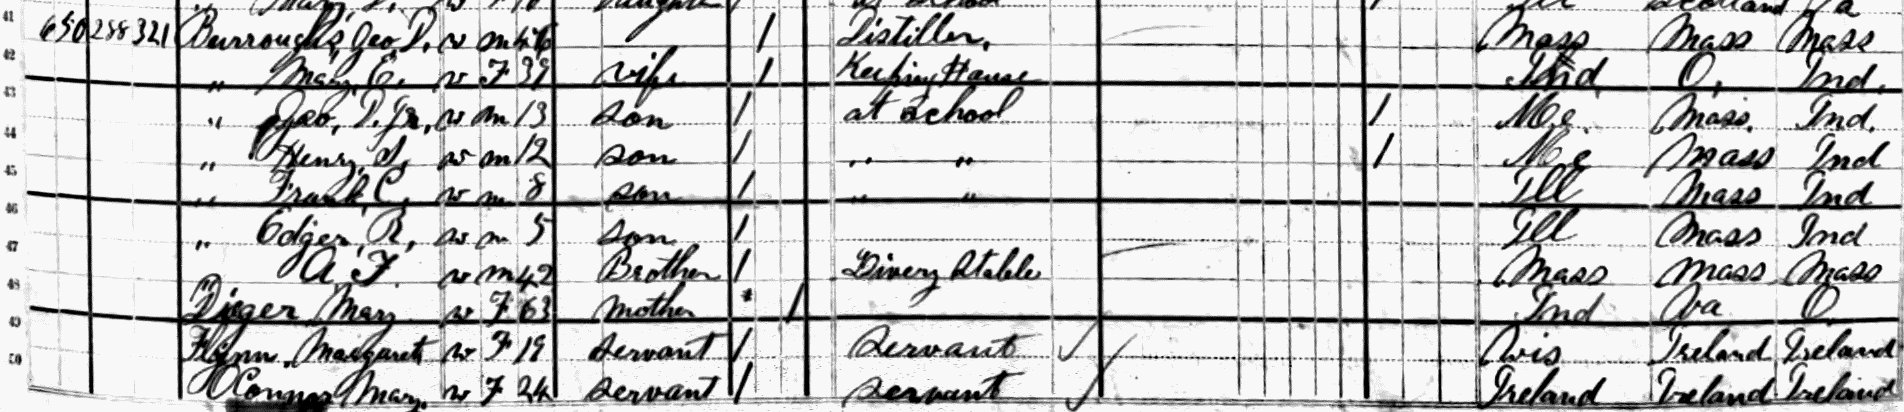 41 at school Ill Scotland Pa
650 288 321 Burroughs, Geo, D, w m 46 / Distiller, Mass Mass Mass
42 „ Mary, E, w F 39 wife / Keeping House Ind O, Ind.
43 „ Geo, D. Jr, w m 13 son / at School / Me. Mass. Ind.
44 „ Henry, w m 12 son / „ „ / Me Mass Ind
45 „ Frank, C, w m 8 son / „ „ Ill Mass Ind
46 „ Edger, R, w m 5 son / Ill Mass Ind
47 „ A. F. w m 42 Brother / Livery Stable Mass Mass Mass
48 Mary w F 63 mother * / Ind Va O
49 Flynn. Margaret w F 19 servant / Servant Wis Ireland Ireland
50 O'Connor Mary. w F 24 servant / servant Ireland Ireland Ireland